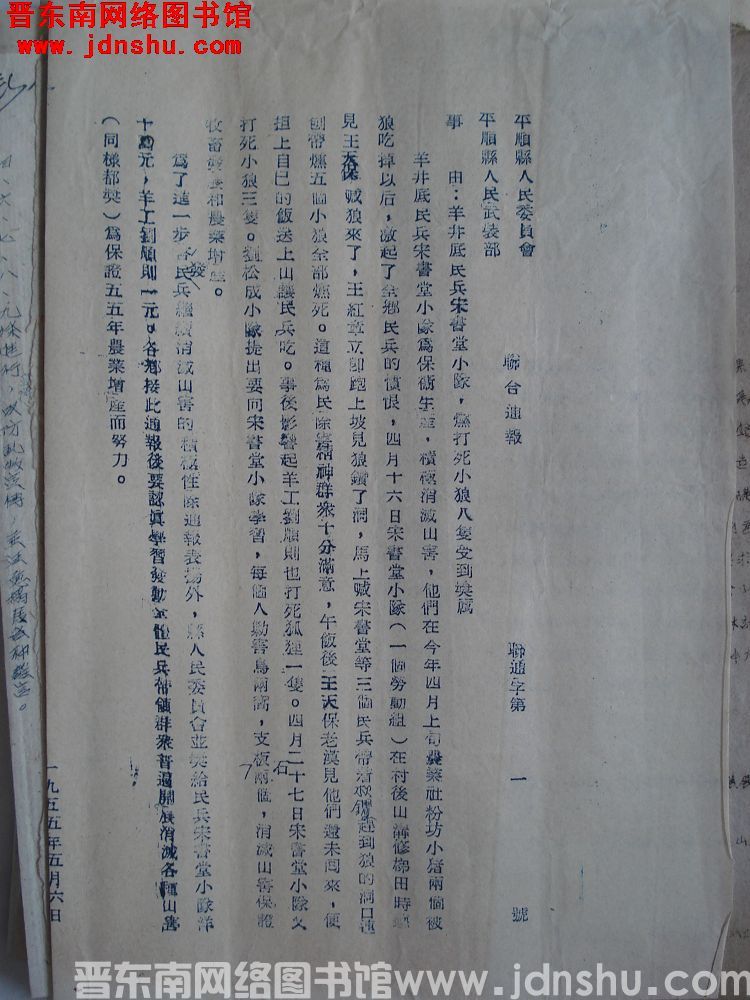 晋东南网络图书馆
www.jdnshu.com
平順縣人民委員會
平順縣人民武裝部
聯合通報
聯通字第 一 號
事 由：羊井底民兵宋書堂小隊，燻打死小狼八隻受到奬勵
羊井底民兵宋書堂小隊為保衛生產，積極消滅山害，他們在今年四月上旬農業社粉坊小猪兩個被
狼吃掉以后，激起了全鄉民兵的憤恨，四月十六日宋書堂小隊（一個勞動組）在村後山溝修梯田時
見王天保喊狼來了，王紅章立即跑上坡見狼鑽了洞，馬上喊宋書堂等三個民兵帶着 钁赶到狼的洞口連
刨帶燻五個小狼全部燻死。這種為民除害精神群衆十分滿意，午飯後王天保老漢見他們還未回來，便
担上自已的飯送上山讓民兵吃。事後影響起羊工劉順則也打死狐狸一隻。四月二十七日宋書堂小隊又
打死小狼三隻。劉松成小隊提出要向宋書堂小隊學習，每個人勦害鳥兩窩，支石板兩個，消滅山害保證
牧畜 和農業增產。
為了進一步發 民兵繼續消滅山害的積極性除通報表揚外，縣人民委員會並奬給民兵宋書堂小隊洋
十 元，羊工劉順則一元。各鄉接此通報後要認真學習發動全體民兵帶領群衆普遍開展消滅各種山害
（同樣都奬）為保證五五年農業增產而努力。
一九五五年五月六日
晋东南网络图书馆 www.jdnshu.com